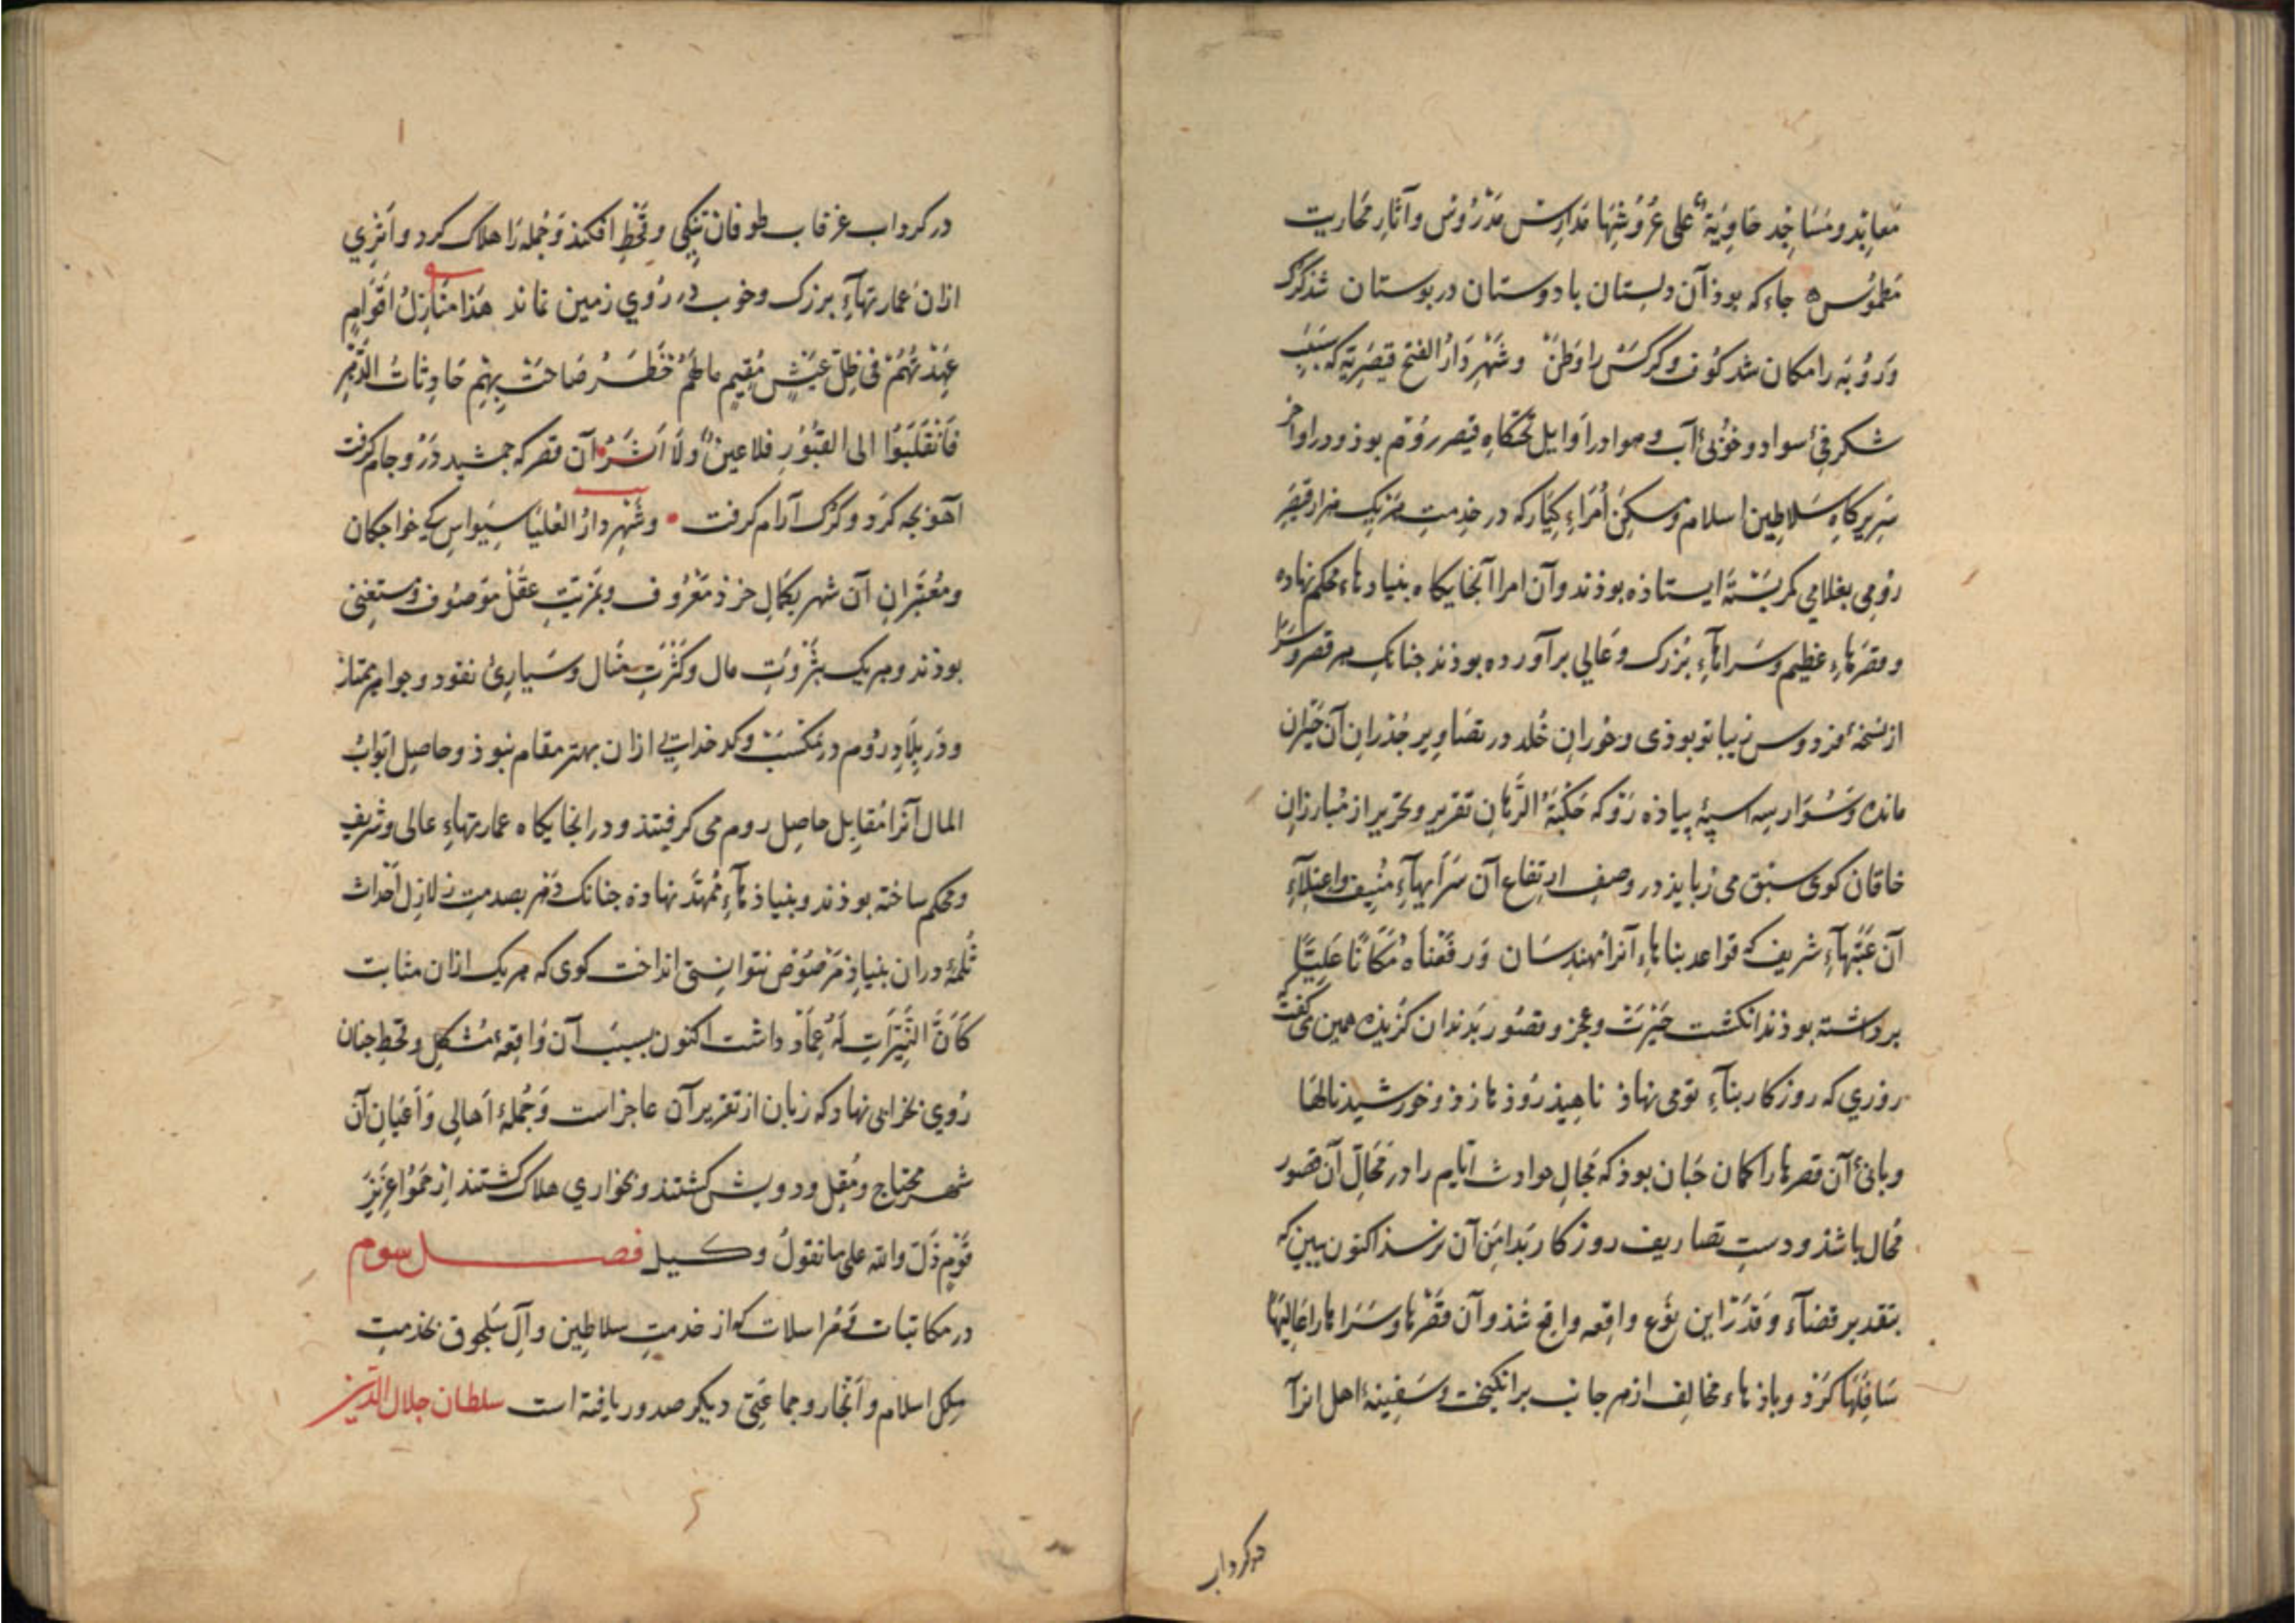 معابد و مساجد خاوية على عروشها مدارس مدروس و آثار محاریب
مطموس جاء که بوذ آن دلستان با دوستان در بوستان شذ کرک
و روبه را مکان شد کوف و کرکس را وطن و شهر دار الفتح قیصریه که بسبب
شکرفئ سواد و خوبئ آب و هوا در اوایل تختکاه قیصر روم بوذ و در اواخر
سریرکاه سلاطین اسلام و مسکن امراء کبار که در خدمت هر یک هزار قیصر
رومی بغلامی کمر بسته ایستاذه بوذند و آن امرا آنجایکاه بنیادهاء محکم نهاده
و قصرهاء عظیم و سراهاء بزرک و عالی برآورده بوذند جنانک هر قصر و سرا
از نسخهٔ فردوس زیباتر بوذی و حوران خلد در تصاویر جذران آن حیران
مانده و سوار سه اسپهٔ پیاذه رو که حکبة الرهان تقریر و تحریر از مبارزان
خاقان کوی سبق می ربایذ در وصف ارتفاع آن سرایهاء منیف و اعتلاء
آن عتبهاء شریف که قواعد بناهاء آنرا مهندسان و رفعناه مکانا علیا
برداشته بوذند انکشت حیرت و عجز و قصور بدندان کزیذه همین می کفت که
روزی که روزکار بناء تو می نهاذ ناهید روذ ها زذ و خورشید نالها
و بانئ آن قصرها را کمان جنان بوذ که مجال حوادث ایام را در محال آن قصور
محال باشذ و دست تصاریف روزکار بدامن آن نرسذ اکنون ببین که
بتقدیر قضاء و قدر این نوع واقعه واقع شذ و آن قصرها و سراها را عالیها
سافلها کرذ و باذهاء مخالف از هر جانب برانکیخت و سفینهٔ اهل انرا
در کرداب
در کرداب غرقاب طوفان تنکی و قحط افکند و جمله را هلاک کرد و اثری
ازان عمارتهاء بزرک و خوب در روی زمین نماند هذا منازل اقوام
عهدتهم فی ظل عیش مقیم ما لهم خطر صاحت بهم حادثات الدهر
فانقلبوا الی القبور فلا عین و لا اثر آن قصر که جمشید درو جام کرفت
آهو بجه کرد و کرک آرام کرفت و شهر دار العلیا سیواس که خواجکان
و معتبران آن شهر بکمال خرذ معروف و بمزیت عقل موصوف و مستغنی
بوذند و هر یک بثروت مال و کثرت منال و بسیارئ نقود و جواهر ممتاز
و در بلاد روم در مکسب و کدخدایی ازان بهتر مقام نبوذ و حاصل ابواب
المال آنرا مقابل حاصل روم می کرفتند و در انجایکاه عمارتهاء عالی و شریف
و محکم ساخته بوذند و بنیاذهاء ممهد نهاذه جنانک دهر بصدمت زلازل احداث
ثلمهٔ دران بنیاذ مرصوص نتوانستی انداخت کوی که هر یک ازان مثابت
کأن النیرات له عماد داشت اکنون بسبب آن واقعهٔ مشکل و قحط جنان
روی بخرابی نهاد که زبان از تقریر آن عاجز است و جملهٔ اهالی و اعیان آن
شهر محتاج و مقل و درویش کشتند و بخواری هلاک کشتند ارحموا عزیز
قوم ذل والله علی ما نقول وکیل فصل سوم
در مکاتبات و مراسلات که از خدمت سلاطین و آل سلجوق بخدمت
ملک اسلام و انجار و جماعتی دیکر صدور یافته است سلطان جلال الدین